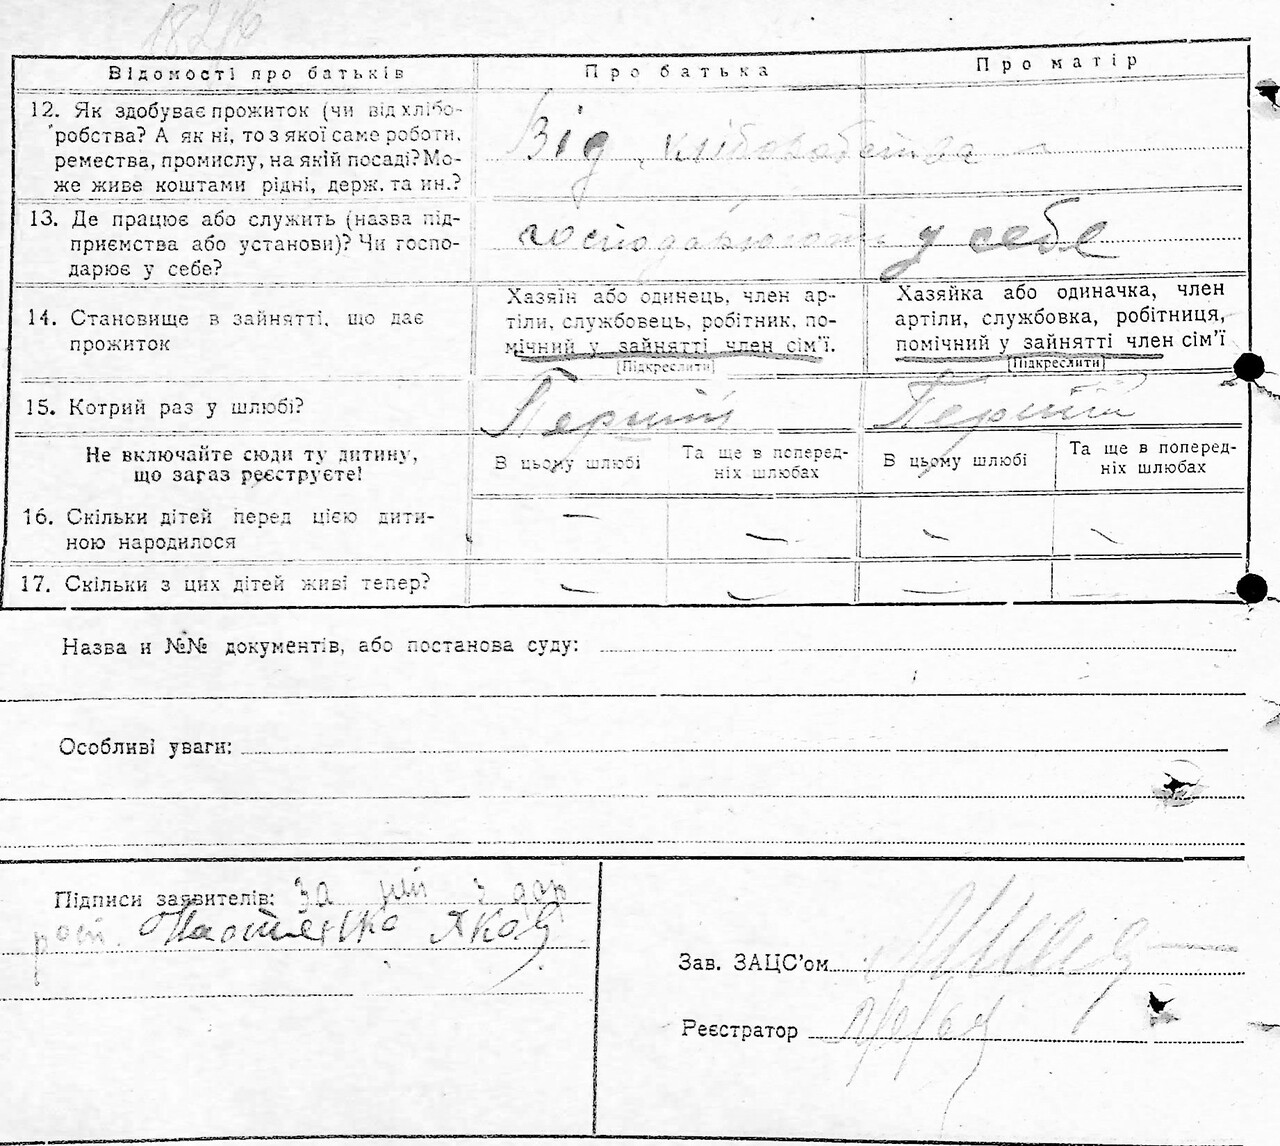 18246
Відомості про батьків
Про батька
Про матір
12. Як здобуває прожиток (чи від хлібо-
робства? А як ні, то з якої саме роботи,
ремества, промислу, на якій посаді? Мо-
же живе коштами рідні, держ. та ин.?
Від хліборобства
13. Де працює або служить (назва під-
приємства або установи)? Чи госпо-
дарює у себе?
господарюють у себе
14. Становище в зайнятті, що дає
прожиток
Хазяїн або одинець, член ар-
тіли, службовець, робітник, по-
мічний у зайнятті член сім'ї.
[Підкреслити]
Хазяйка або одиначка, член
артіли, службовка, робітниця,
помічний у зайнятті член сім'ї
[Підкреслити]
15. Котрий раз у шлюбі?
Перший
Перший
Не включайте сюди ту дитину,
що зараз реєструєте!
В цьому шлюбі
Та ще в поперед-
ніх шлюбах
В цьому шлюбі
Та ще в поперед-
ніх шлюбах
16. Скільки дітей перед цією дити-
ною народилося
— — — —
17. Скільки з цих дітей живі тепер?
— — — —
Назва и №№ документів, або постанова суду:
Особливі уваги:
Підписи заявителів: за
Яков
Зав. ЗАЦС'ом
Реєстратор